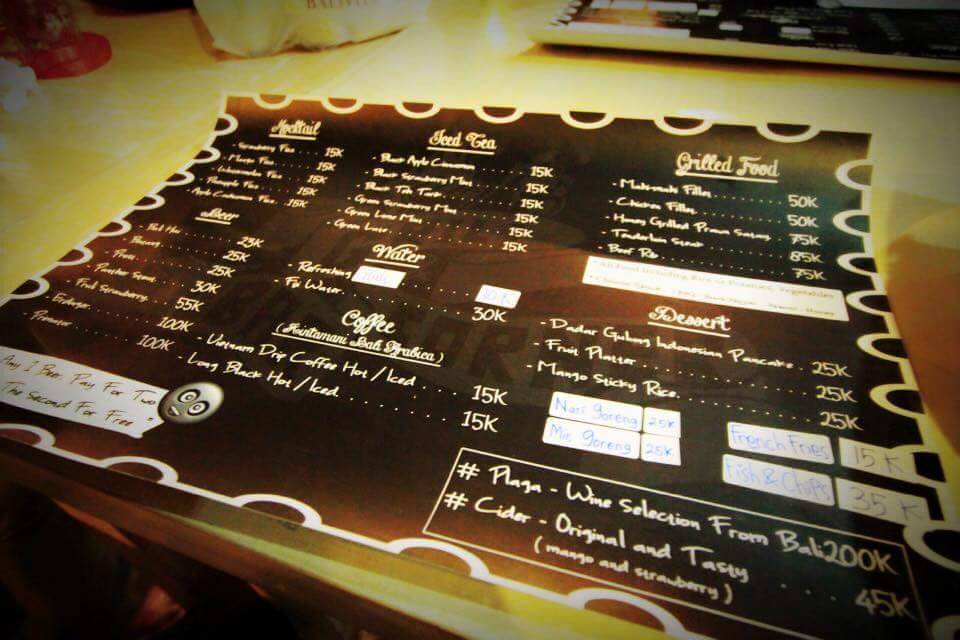 Mocktail
Strawberry Fizz 15K
Mango Fizz 15K
Fizz 15K
Pineapple Fizz 15K
Apple Cinnamon Fizz 15K
Beer
25K
Bintang 25K
Prost 25K
Panther Stout 30K
Fruli Strawberry 55K
Erdinger 100K
100K
Any 1 Beer Pay For Two
The Second For Free
Iced Tea
- Black Apple Cinnamon 15K
- Black Strawberry Mint 15K
- Black Teh Tarik 15K
- Green Strawberry Mint 15K
- Green Lime Mint 15K
- Green Lime 15K
Water
- Refreshing
- Fiji Water 30K
10 K
Coffee
(Kintamani Bali Arabica)
- Vietnam Drip Coffee Hot / Iced 15K
- Long Black Hot / Iced 15K
Grilled Food
- Mahi-mahi Fillet 50K
- Chicken Fillet 50K
- Honey Grilled Prawn Satay 75K
- Tenderloin Steak 85K
- Beef Rib 75K
All Food Including Rice Or Potatoes, Vegetables
Dessert
- Dadar Gulung Indonesian Pancake 25K
- Fruit Platter 25K
- Mango Sticky Rice 25K
Nasi goreng 25K
Mie goreng 25K
French Fries 15 K
Fish & Chips 35 K
# Plaga - Wine Selection From Bali 200K
# Cider - Original and Tasty
(mango and strawberry) 45K